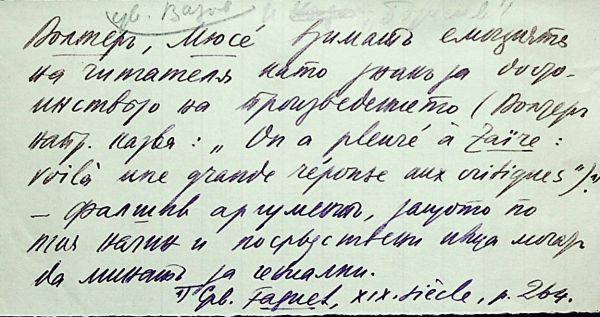 ср. Вазов
Волтеръ, Мюсé взиматъ емоциитѣ
на читателя като знакъ за досто-
инството на произведението (Волтеръ
напр. казва: „On a pleuré à Zaïre:
voilà une grande réponse aux critiques“).*)
— фалшивъ аргументъ, защото по
тоя начин и посрѣдствени нѣща могатъ
да минатъ за гениални.
*) Срв. Faguet, XIX. siècle, p. 264.